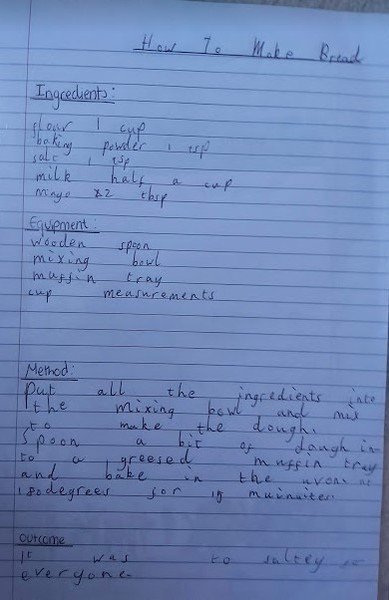 How To Make Bread
Ingredients:
flour 1 cup
baking powder 1 tsp
salt 1 tsp
milk half a cup
mayo 2 tbsp
Equipment:
wooden spoon
mixing bowl
muffin tray
cup measurements
Method:
Put all the ingredients into
the mixing bowl and mix
to make the dough.
Spoon a bit of dough in
to a greesed muffin tray
and bake in the uvon at
180degrees for 15
outcome
it was to saltey for
everyone.